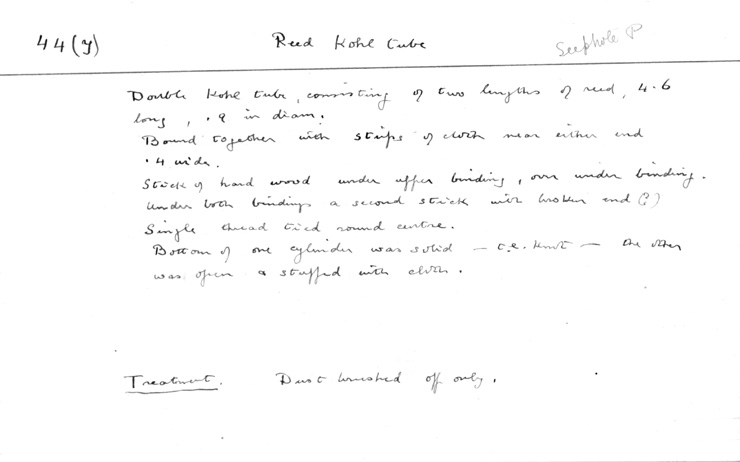 44(y) Reed Kohl tube See photo P
Double Kohl tube, consisting of two lengths of reed, 4.6
long, .9 in diam.
Bound together with strips of cloth near either end
.4 wide.
Stick of hard wood under upper binding, over under binding.
Under both bindings a second stick with broken end (?)
Single thread tied round centre.
Bottom of one cylinder was solid — i.e. knot — the other
was open & stuffed with cloth.
Treatment. Dust brushed off only.